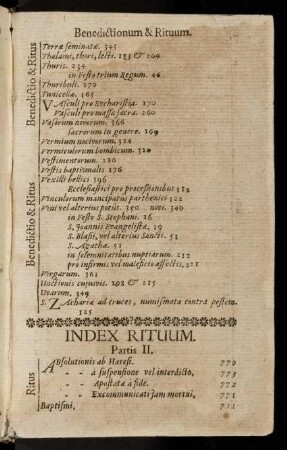 Benedictionum & Rituum.
Terræ seminatæ. 345
Thalami, thori, lecti. 185 & 204
Thuris. 234
in Festo trium Regum. 46
Thuribuli. 170
Tunicellæ. 165
VAsculi pro Eucharistia. 170
Vasculi pro massa sacra. 260
Vasorum novorum. 366
sacrorum in genere. 169
Vermium nocivorum. 314
Vermiculorum bombicum. 320
Vestimentorum. 286
Vestis baptismalis 176
Vexilli bellici 196
Ecclesiastici pro processionibus 313
Vinculorum mancipatus parthenici 322
Vini vel alterius potus. 350 novi. 349
in Festo S. Stephani. 16
S. Joannis Evangelistæ. 19
S. Blasii, vel alterius Sancti. 51
S. Agathæ. 51
in solemnitatibus nuptiarum. 212
pro infirmis vel maleficio affectis. 321
Virgarum. 361
Unctionis cujusvis. 208 & 215
Uvarum. 349
S. ZAchariæ ad cruces, numismata contra pestem.
325
INDEX RITUUM.
Partis II.
ABsolutionis ab Hæresi. 770
à suspensione vel interdicto. 773
Apostatæ à fide. 772
Excommunicati jam mortui. 771
Baptismi.
Benedictio & Ritus
Benedictio & Ritus
Benedictio & Ritus
Ritus